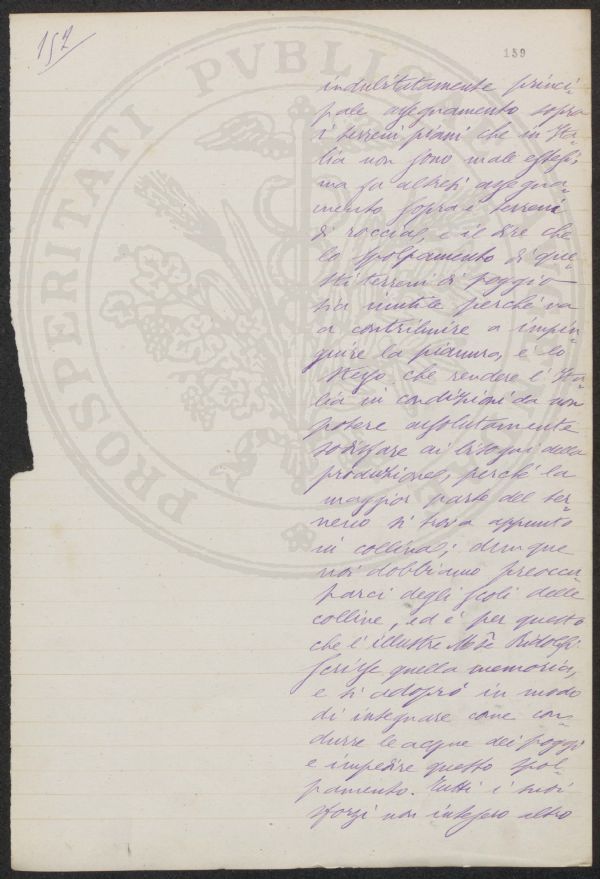 157
159
indubitatamente princi
pale assegnamento sopra
i terreni piani che in Ita-
lia non sono male estesi,
ma fa altresì assegna-
mento sopra i terreni
di roccia, e il dire che
lo spolpamento di que-
sti terreni di poggio
sia inutile perché va
a contribuire a impin-
guire la pianura, è lo
stesso che rendere l'Ita-
lia in condizioni da non
potere assolutamente
sodisfare ai bisogni della
produzione, perché la
maggior parte del ter-
reno si trova appunto
in collina; dunque
noi dobbiamo preoccu-
parci degli scoli delle
colline, ed è per questo
che l'illustre M.se Ridolfi
scrisse quella memoria,
e si adoprò in modo
di integnare come con-
durre le acque dei poggi
e impedire questo spol-
pamento. Tutti i suoi
sforzi non intesero altro
PROSPERITATI PVBLICAE